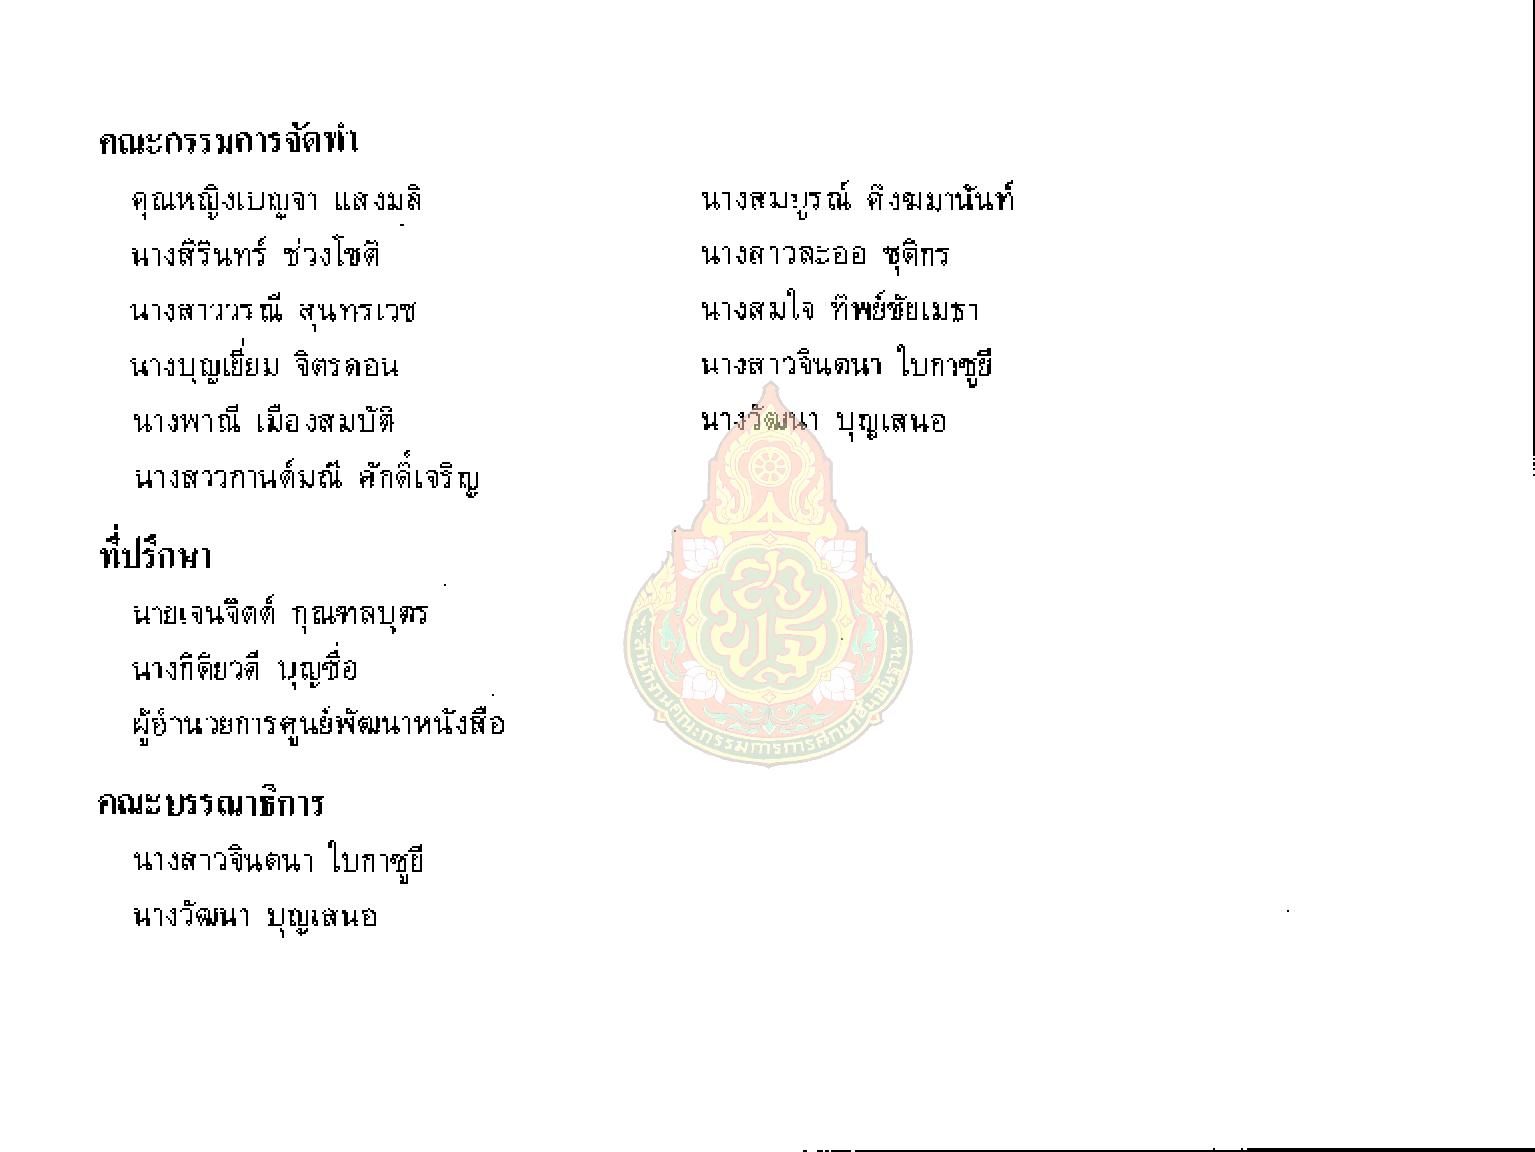 คณะกรรมการจัดทำ
คุณหญิงเบญจา แสงมลิ
นางสิรินทร์ ช่วงโชติ
นางสาววรณี สุนทรเวช
นางบุญเยี่ยม จิตรดอน
นางพาณี เมืองสมบัติ
นางสาวกานต์มณี ศักดิ์เจริญ
นางสมบูรณ์ ศิงฆมานันท์
นางสาวละออ ชุติกร
นางสมใจ ทิพย์ชัยเมธา
นางสาวจินตนา ใบกาซูยี
นางวัฒนา บุญเสนอ
ที่ปรึกษา
นายเจนจิตต์ กุณฑลบุตร
นางกิติยวดี บุญซื่อ
ผู้อำนวยการศูนย์พัฒนาหนังสือ
คณะบรรณาธิการ
นางสาวจินตนา ใบกาซูยี
นางวัฒนา บุญเสนอ
สำนักงานคณะกรรมการการศึกษาขั้นพื้นฐาน